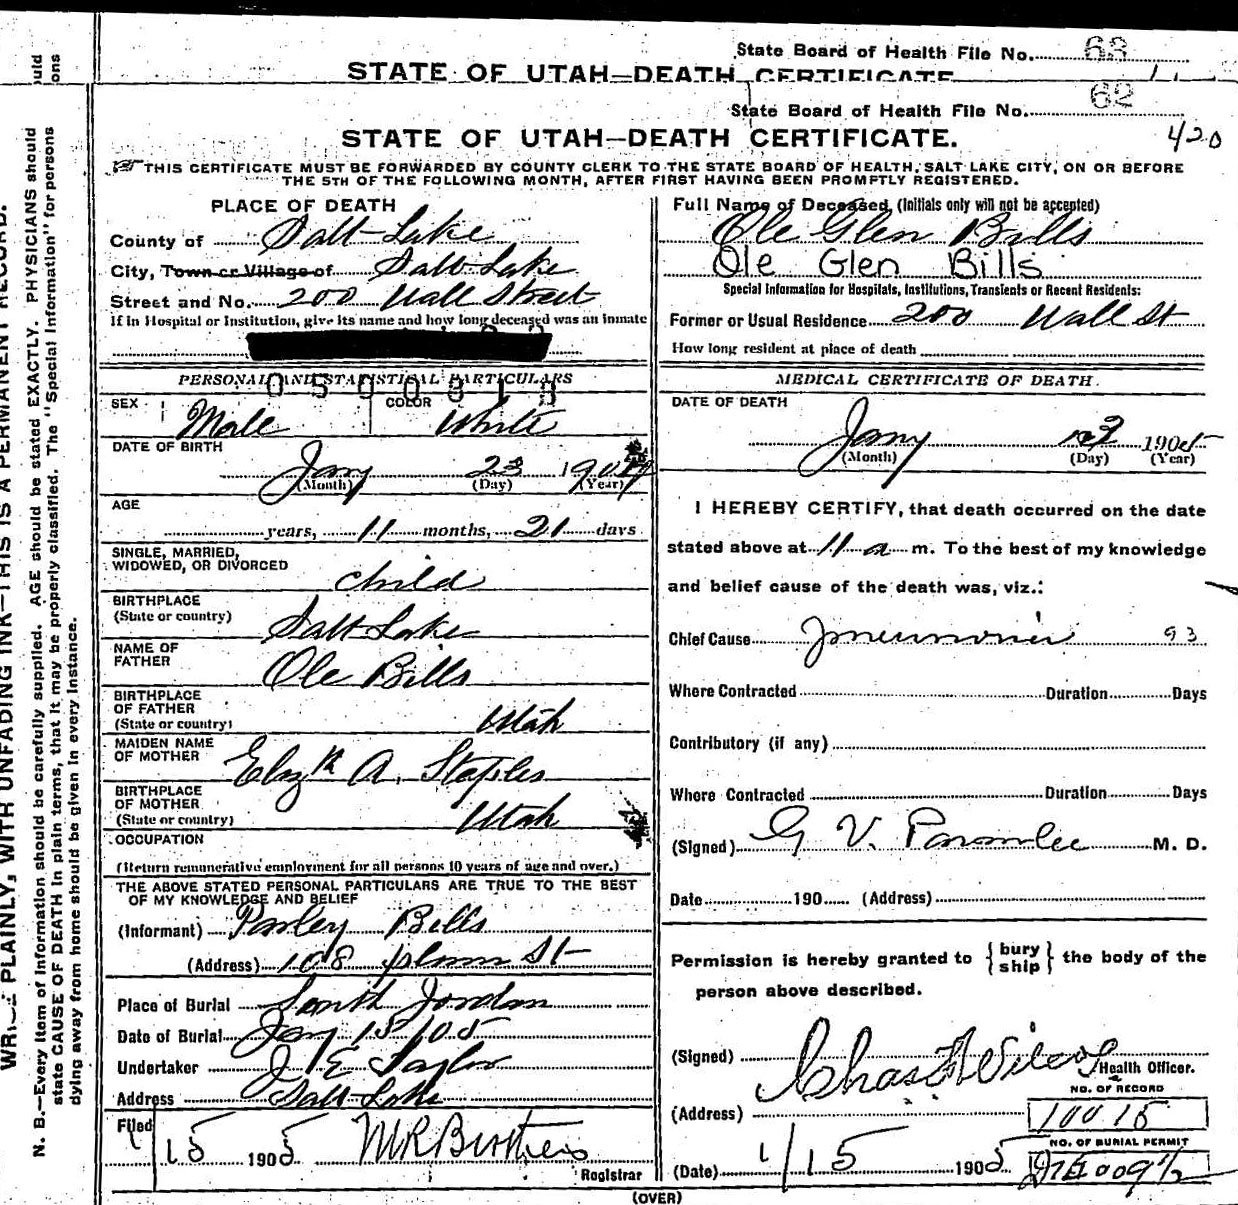 State Board of Health File No. 63
STATE OF UTAH—DEATH CERTIFICATE
State Board of Health File No. 62
STATE OF UTAH—DEATH CERTIFICATE.
420
THIS CERTIFICATE MUST BE FORWARDED BY COUNTY CLERK TO THE STATE BOARD OF HEALTH, SALT LAKE CITY, ON OR BEFORE
THE 5TH OF THE FOLLOWING MONTH, AFTER FIRST HAVING BEEN PROMPTLY REGISTERED.
PLACE OF DEATH
County of Salt Lake
City, Town or Village of Salt Lake
Street and No. 200 Wall Street
If in Hospital or Institution, give its name and how long deceased was an inmate
PERSONAL AND STATISTICAL PARTICULARS
SEX Male COLOR White
DATE OF BIRTH
Jany 23 190
(Month) (Day) (Year)
AGE
years, 11 months, 21 days
SINGLE, MARRIED,
WIDOWED, OR DIVORCED
child
BIRTHPLACE
(State or country) Salt Lake
NAME OF
FATHER Ole Bills
BIRTHPLACE
OF FATHER
(State or country) Utah
MAIDEN NAME
OF MOTHER Elizth A. Staples
BIRTHPLACE
OF MOTHER
(State or country) Utah
OCCUPATION
(Return remunerative employment for all persons 10 years of age and over.)
THE ABOVE STATED PERSONAL PARTICULARS ARE TRUE TO THE BEST
OF MY KNOWLEDGE AND BELIEF
(Informant) Parley Bills
(Address) 108 plum St
Place of Burial South Jordan
Date of Burial Jany 15/05
Undertaker J E Taylor
Address Salt Lake
Filed
1/15 1905 M R
Registrar
(OVER)
Full Name of Deceased (Initials only will not be accepted)
Ole Glen Bills
Ole Glen Bills
Special Information for Hospitals, Institutions, Transients or Recent Residents:
Former or Usual Residence 200 Wall St
How long resident at place of death
MEDICAL CERTIFICATE OF DEATH.
DATE OF DEATH
Jany 1905
(Month) (Day) (Year)
I HEREBY CERTIFY, that death occurred on the date
stated above at 11 a m. To the best of my knowledge
and belief cause of the death was, viz.:
Chief Cause Pneumonia 93
Where Contracted Duration Days
Contributory (if any)
Where Contracted Duration Days
(Signed) G V. Parmalee M. D.
Date 190 (Address)
Permission is hereby granted to { bury
ship } the body of the
person above described.
(Signed) Chas F Wilcox
Health Officer.
NO. OF RECORD
(Address) 10015
NO. OF BURIAL PERMIT
(Date) 1/15 1905
WRITE PLAINLY, WITH UNFADING INK—THIS IS A PERMANENT RECORD.
N. B.—Every item of information should be carefully supplied. AGE should be stated EXACTLY. PHYSICIANS should
state CAUSE OF DEATH in plain terms, that it may be properly classified. The "Special Information" for persons
dying away from home should be given in every instance.